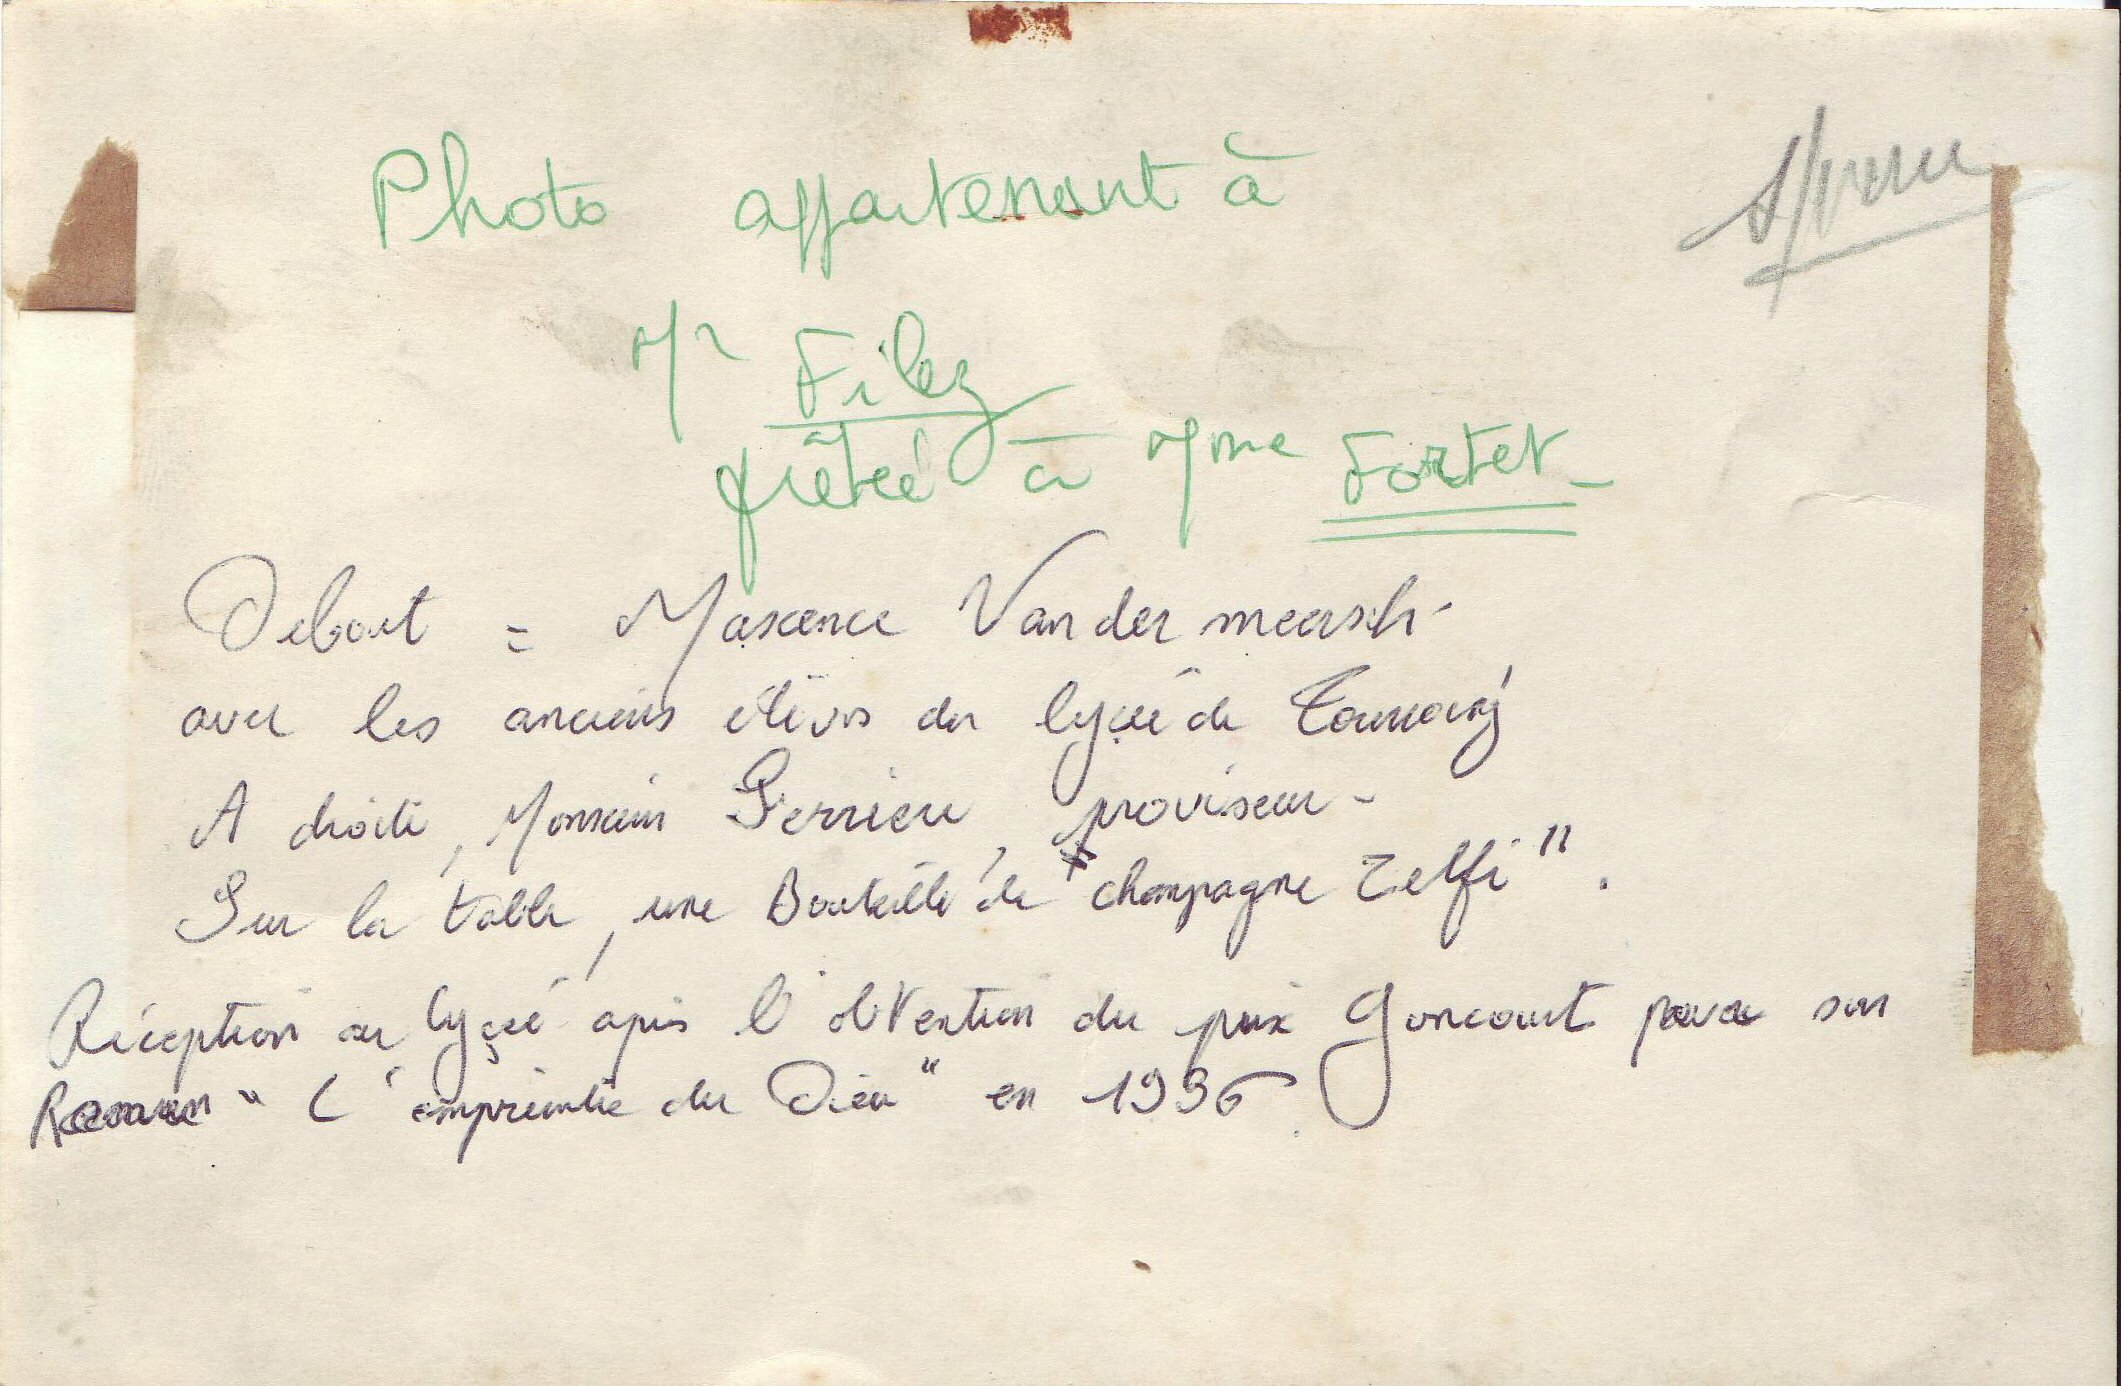 Photo appartenant à
Mr Filez
prêtée à Mme Fortet -
Debout = Maxence Van der meersch -
avec les anciens élèves du lycée de Tourcoing
A droite, Monsieur Perrieu, proviseur -
Sur la table, une Bouteille de "champagne Telfi".
Réception au lycée après l'obtention du prix Goncourt pour son
Roman "L'empreinte du Dieu" en 1936